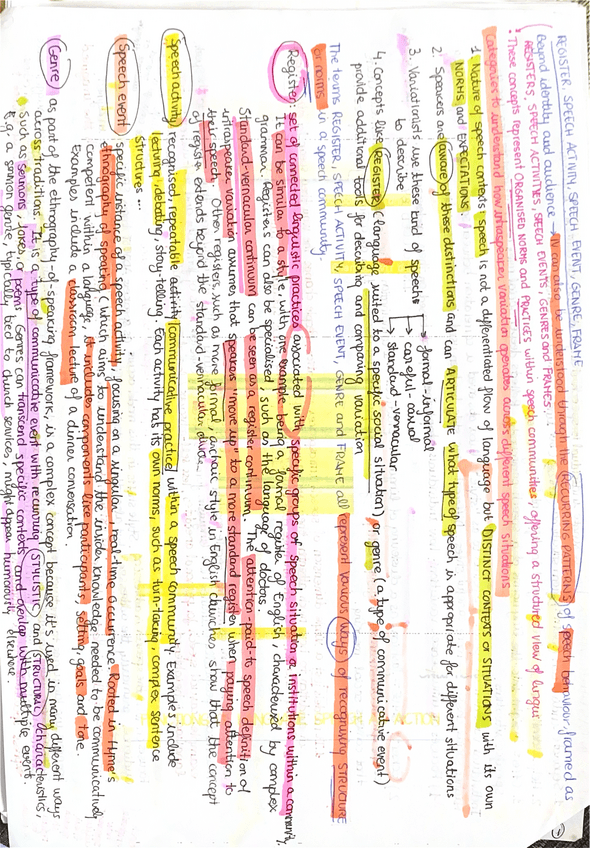 REGISTER, SPEECH ACTIVITY, SPEECH EVENT, GENRE, FRAME
Beyond identity and audience → IV can also be understood through the RECURRING PATTERNS of speech behaviour framed as
REGISTERS, SPEECH ACTIVITIES, SPEECH EVENTS, GENRES AND FRAMES.
· These concepts represent ORGANISED NORMS and PRACTICES within speech communities, offering a structured view of
categories to understand how intraspeaker variation operates across different speech situations
1. Nature of speech contexts: speech is not a differentiated flow of language but DISTINCT CONTEXTS or SITUATIONS with its own
NORMS and EXPECTATIONS.
2. Speakers are aware of these distinctions and can ARTICULATE what type of speech is appropriate for different situations
3. Variationists use these kind of speech
to describe
formal-informal
careful-casual
standard-vernacular
4. Concepts like REGISTER (language suited to a specific social situation) or genre (a type of communicative event)
provide additional tools for describing and comparing variation
The terms REGISTER, SPEECH ACTIVITY, SPEECH EVENT, GENRE and FRAME all represent various ways of recognising STRUCTURE
or norms in a speech community.
Register: set of connected linguistic practices associated with specific groups of speech situation or institutions within a community.
It can be similar to a style, with one example being a formal register of English, characterized by complex
grammar. Registers can also be specialised such as the language of doctors.
Standard-vernacular continuum can be seen as a register continuum. The attention-paid-to speech definition of
intraspeaker variation assumes that speakers "move up" to a more standard register when paying attention to
their speech. Other registers, such as more formal archaic style in English churches, show that the concept
of register extends beyond the standard-vernacular divide
Speech activity recognised, repeatable activity (communicative practice) within a speech community. Examples include
lecturing, debating, story-telling. Each activity has its own norms, such as turn-taking, complex sentence
structures...
Speech event specific instance of a speech activity, focusing on a singular, real-time occurrence. Rooted in Hyme's
ethnography of speaking (which aims to understand the inside knowledge needed to be communicatively
competent within a language, it includes components like participants, setting, goals and tone.
Examples include a classroom lecture of a dinner conversation.
Genre as part of the ethnography-of-speaking framework, is a complex concept because it's used in many different ways
across traditions. It is a type of communicative event with recurring (STYLISTIC) and (STRUCTURAL) characteristics,
such as sermons, jokes, or poems. Genres can transcend specific contexts and overlap with multiple event.
E.g. a sermon genre, typically tied to church services, might appear humorously elsewhere.